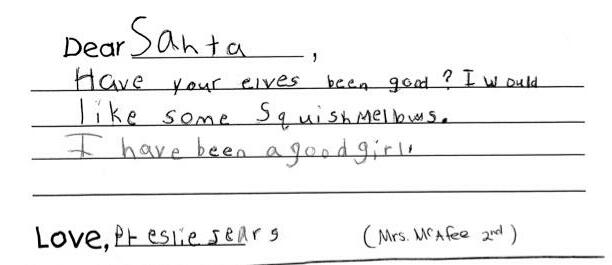 Dear Santa,
Have your elves been good? I would
like some Squishmellows.
I have been a good girl.
Love, Preslie Sears (Mrs. McAfee 2nd)